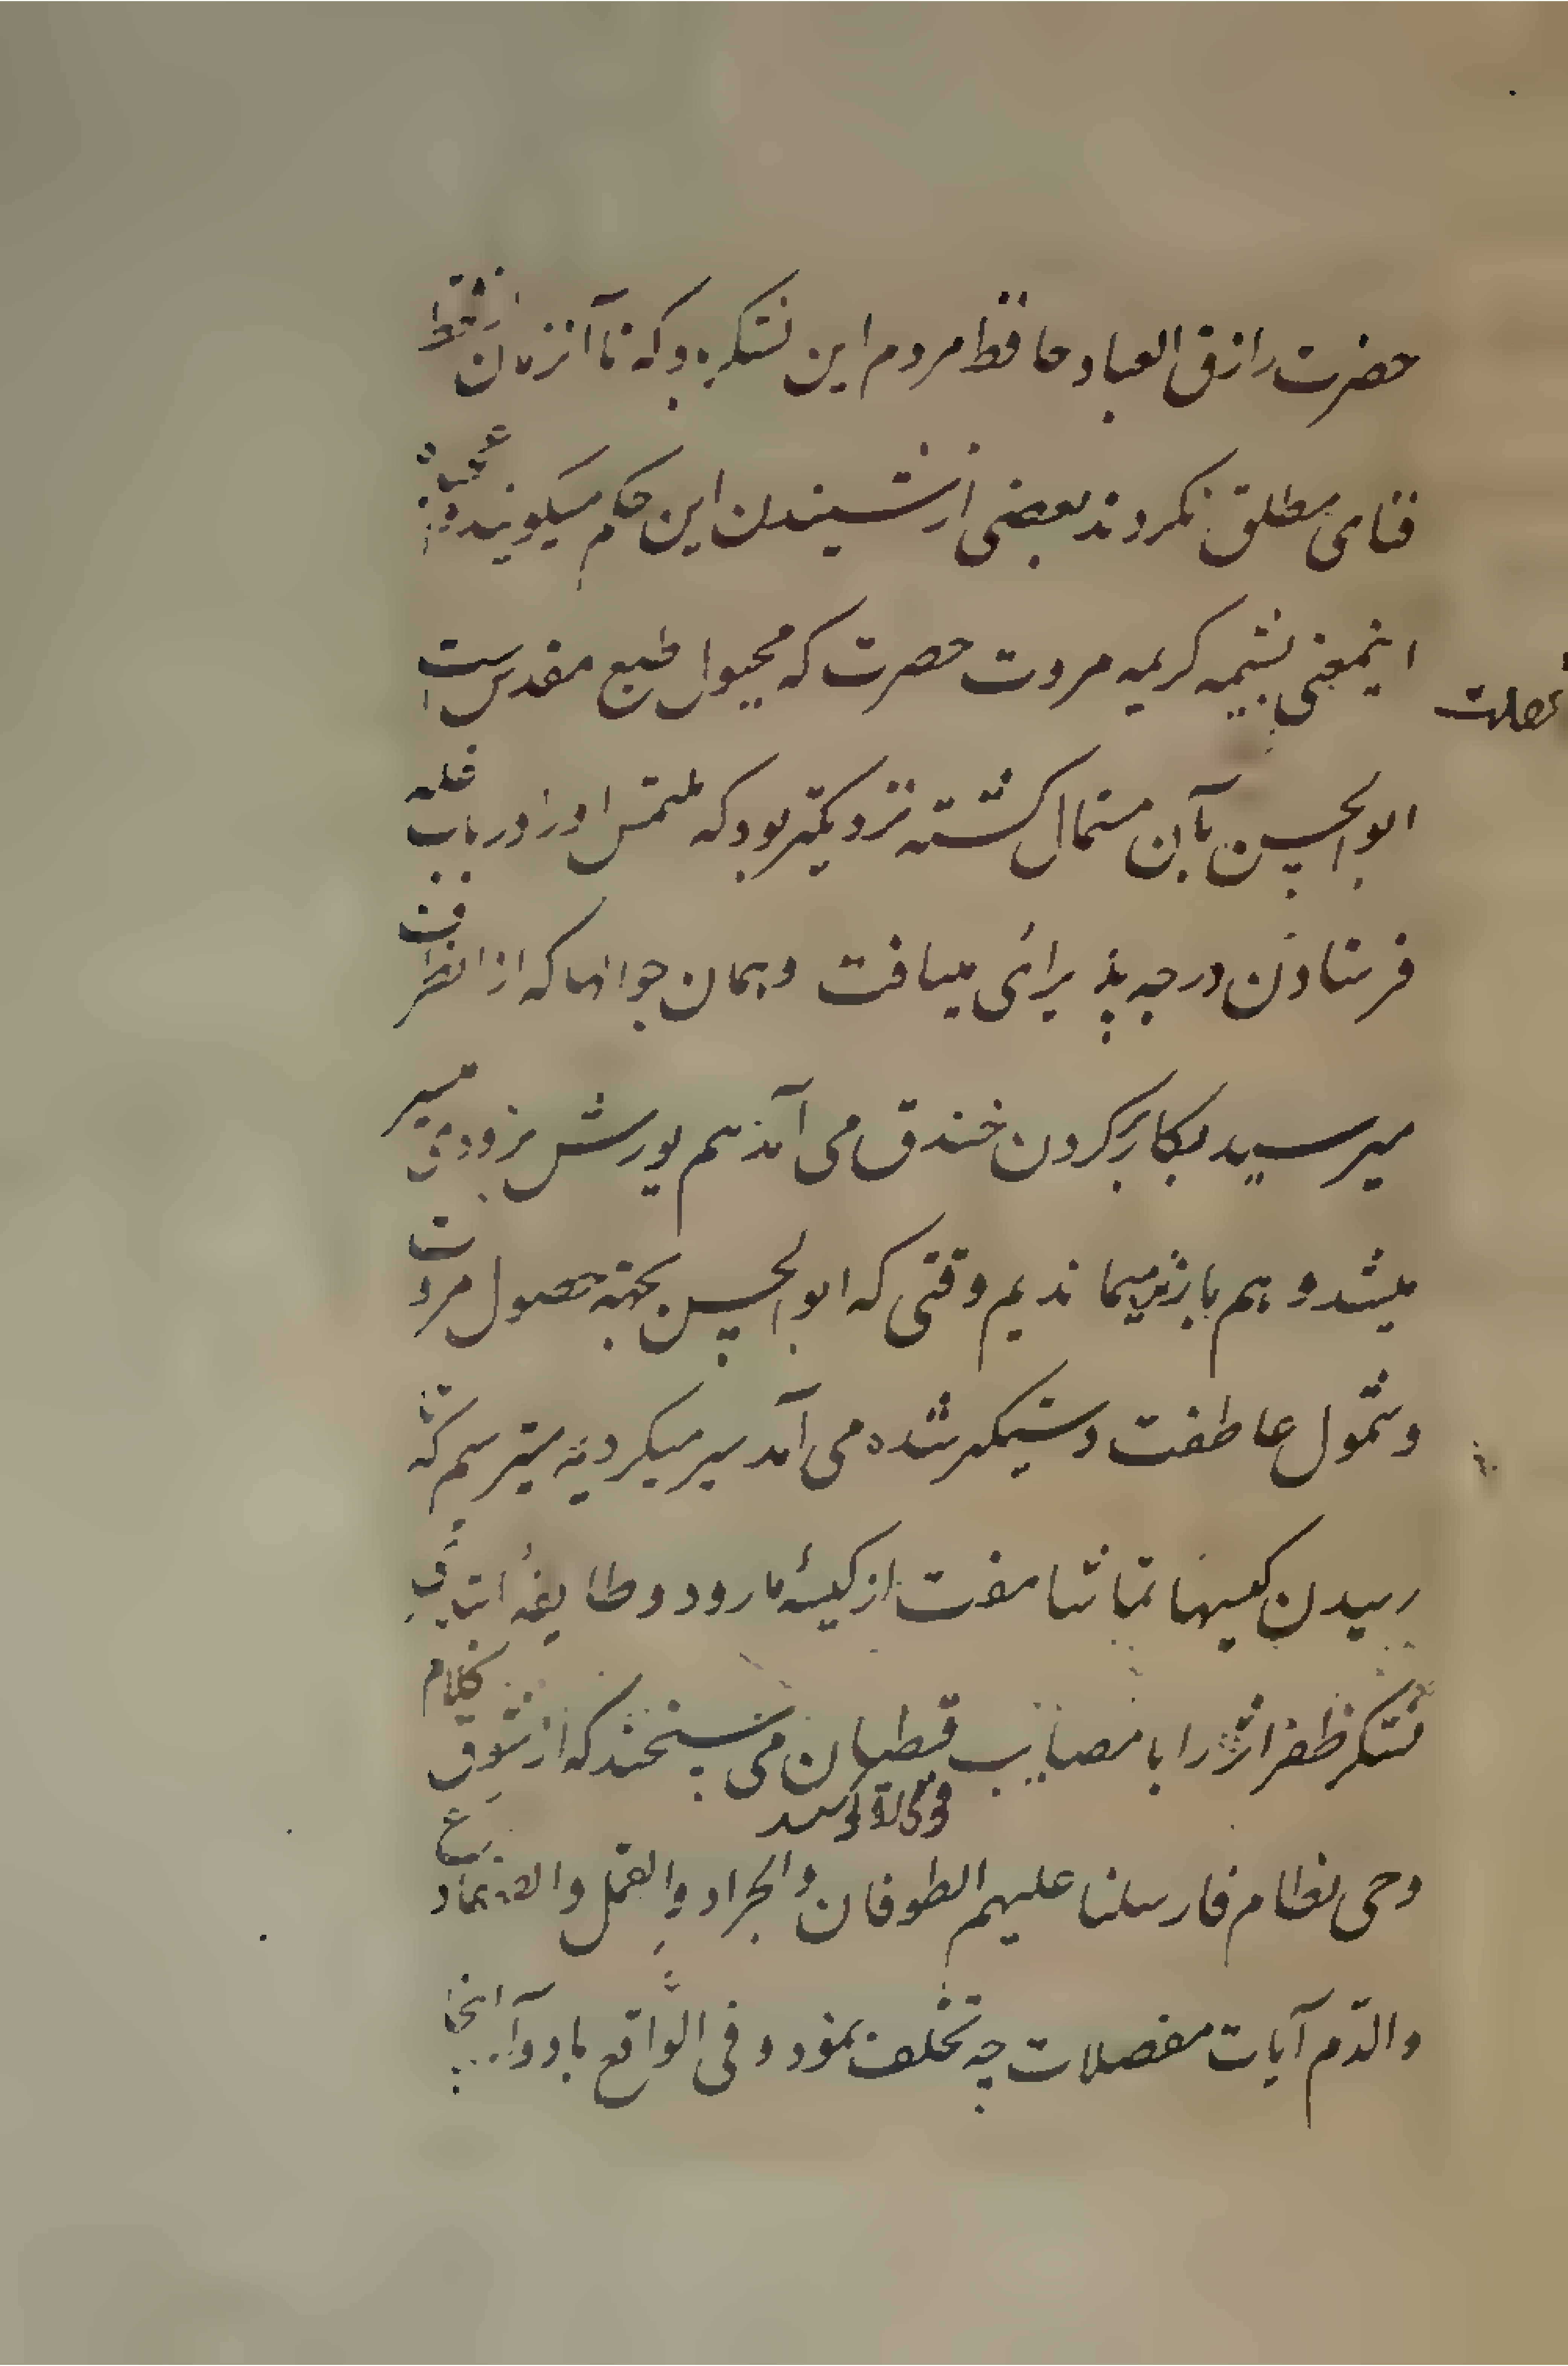 حضرت رازق العباد حافظ مردم این لشکر بود که تا آنزمان از قحط
فنای مطلق نکردند بعضی از شنیدن این حکم میگویند
اینمعنی بشیمه کریمه مروت حضرت که مجبول طبع مقدس است
خصلت
ابوالحسن بآن مستمال گشته نزدیکتر بود که ملتمس او را در باب غله
فرستادن درجه پذیرائی مییافت و همان جوالها که از انطرف
میرسید بکار پر کردن خندق می آمد هم یورش بزودی میسر
میشد و هم باز نمیماندیم وقتی که ابوالحسن بجهة حصول مروت
و شمول عاطفت دستگیر شده می آمد سیر میکردیم میترسم که تا
رسیدن کیسها تماشا مفت از کیسهٔ ما رود و طایفهٔ
لشکر ظفر اثر را با مصایب قبطیان می سنجند که از سیاق کلام
وحی نظام فارسلنا علیهم الطوفان والجراد والقمل والضفادع
والدم آیات مفصلات چه تخلف نمود و فی الواقع باد و